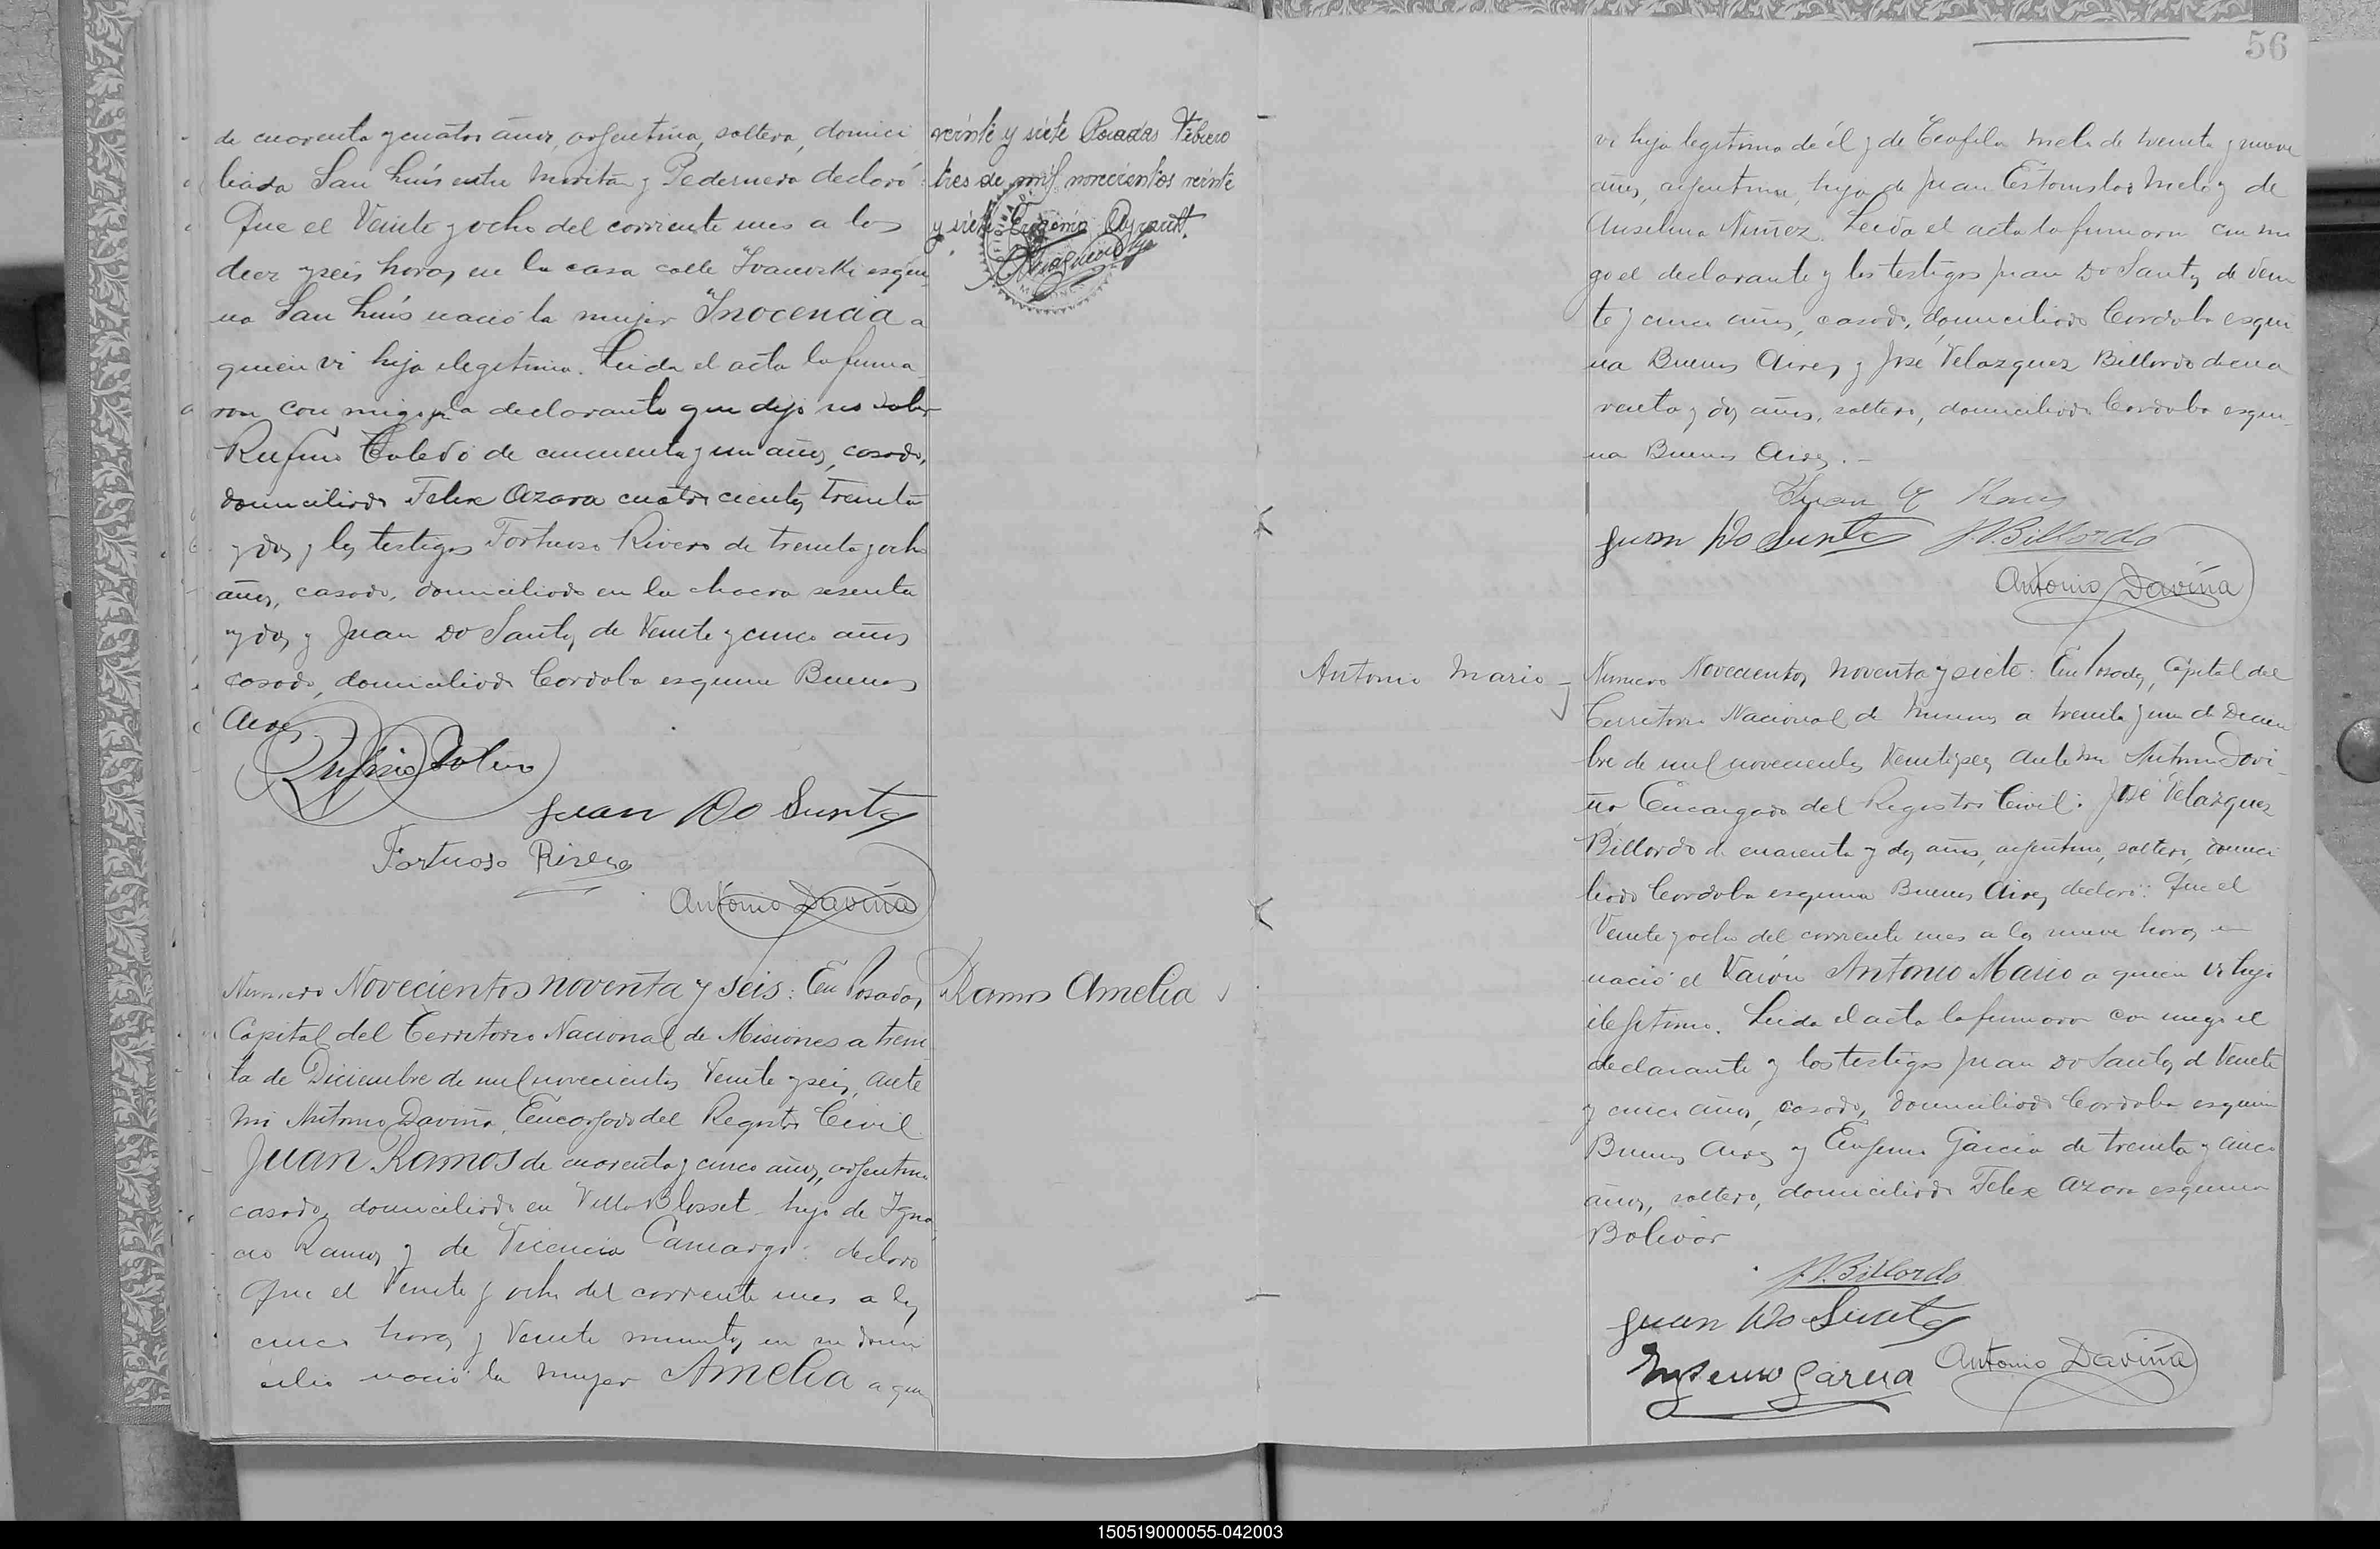 de cuarenta y cuatro años, argentina, soltera, domici
liada San Luis entre y Pedernera declaró:
Que el Veinte y ocho del corriente mes a las
diez y seis horas, en la casa calle esqui
na San Luis nació la mujer "Inocencia" a
quien vi hija ilegitima. Leida el acta la firma
ron con migo la declarante que dijo no saber
Rufino Toledo de cincuenta y un años, casado,
domiciliado Felix Azara cuatrocientos treinta
y dos y los testigos Fortuoso Rivero de treinta y ocho
años, casado, domiciliado en la chacra sesenta
y dos y Juan Do Santos de Veinte y cinco años
casado, domiciliado Cordoba esquina Buenos
Aires
Juan Do Santos
Fortuoso Rivero
Antonio Daviña
Numero Novecientos noventa y seis: En Posadas,
Capital del Territorio Nacional de Misiones a trein
ta de Diciembre de mil novecientos Veinte y seis, ante
mi Antonio Daviña, Encargado del Registro Civil
Juan Ramos de cuarenta y cinco años, argentino
casado, domiciliado en Villa Blosset hijo de Igna
cio Ramos y de Vicencia Camargo: declaro
Que el Veinte y ocho del corriente mes a las
cinco horas y Veinte minutos en su domi
cilio nació la mujer Amelia a quien
veinte y siete Posadas Febrero
tres de mil novecientos veinte
y siete
Ramos Amelia
56
vi hija legitima de él y de Teofila Melo de treinta y nueve
años, argentina, hija de Juan Estanislao Melo y de
Anselma Nuñez. Leida el acta la firmaron con mi
go el declarante y los testigos Juan Do Santos de Vein
te y cinco años, casado, domiciliado Cordoba esqui
na Buenos Aires y José Velazquez Billordo de cua
renta y dos años, soltero, domiciliado Cordoba esqui
na Buenos Aires.
Juan Do Santos J.V. Billordo
Antonio Daviña
Antonio Mario
Numero Novecientos noventa y siete: En Posadas, Capital del
Territorio Nacional de Misiones a treinta y uno de Diciem
bre de mil novecientos Veintiseis, ante mi Antonio Davi
ña, Encargado del Registro Civil: José Velazquez
Billordo de cuarenta y dos años, argentino, soltero, domici
liado Cordoba esquina Buenos Aires, declaró: Que el
Veinte y ocho del corriente mes a las nueve horas
nació el Varón Antonio Mario a quien vi hijo
ilegitimo. Leida el acta la firmaron con migo el
declarante y los testigos Juan Do Santos de Veinte
y cinco años, casado, domiciliado Cordoba esquina
Buenos Aires y Eugenio Garcia de treinta y cinco
años, soltero, domiciliado Felix Azara esquina
Bolivar
J.V. Billordo
Juan Do Santos
Eugenio Garcia Antonio Daviña
150519000055-042003